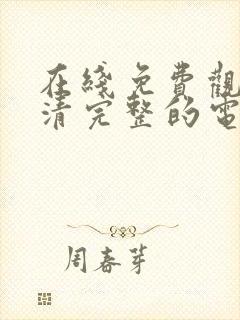 在綫免費觀
清完整的電
周春芽